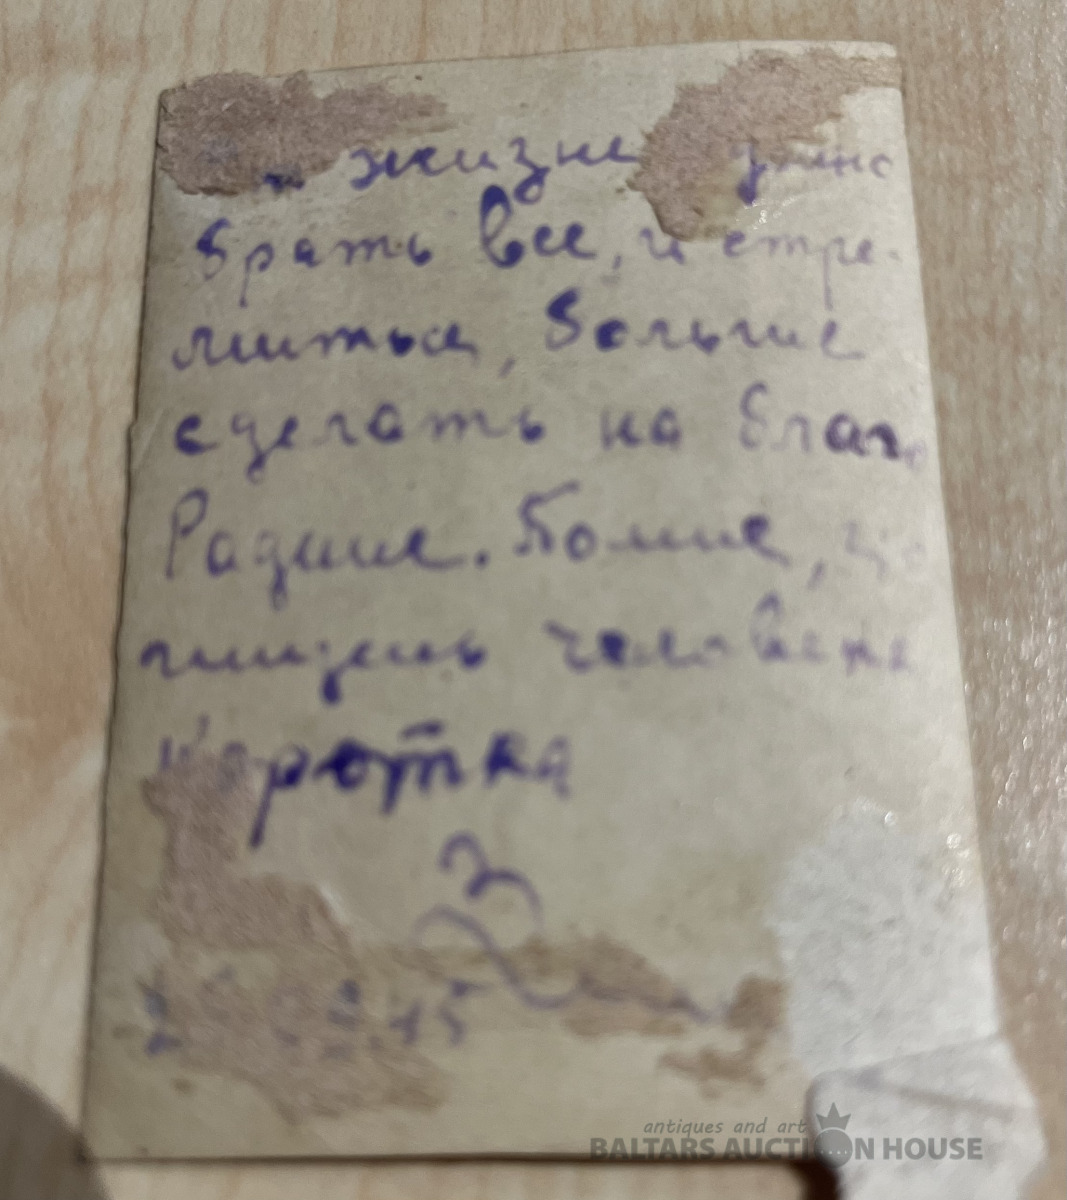 жизни
брать все, и стре-
миться, больше
сделать на благо
Родине. Помни,
жизнь человека
коротка
45
antiques and art
BALTARS AUCTION HOUSE